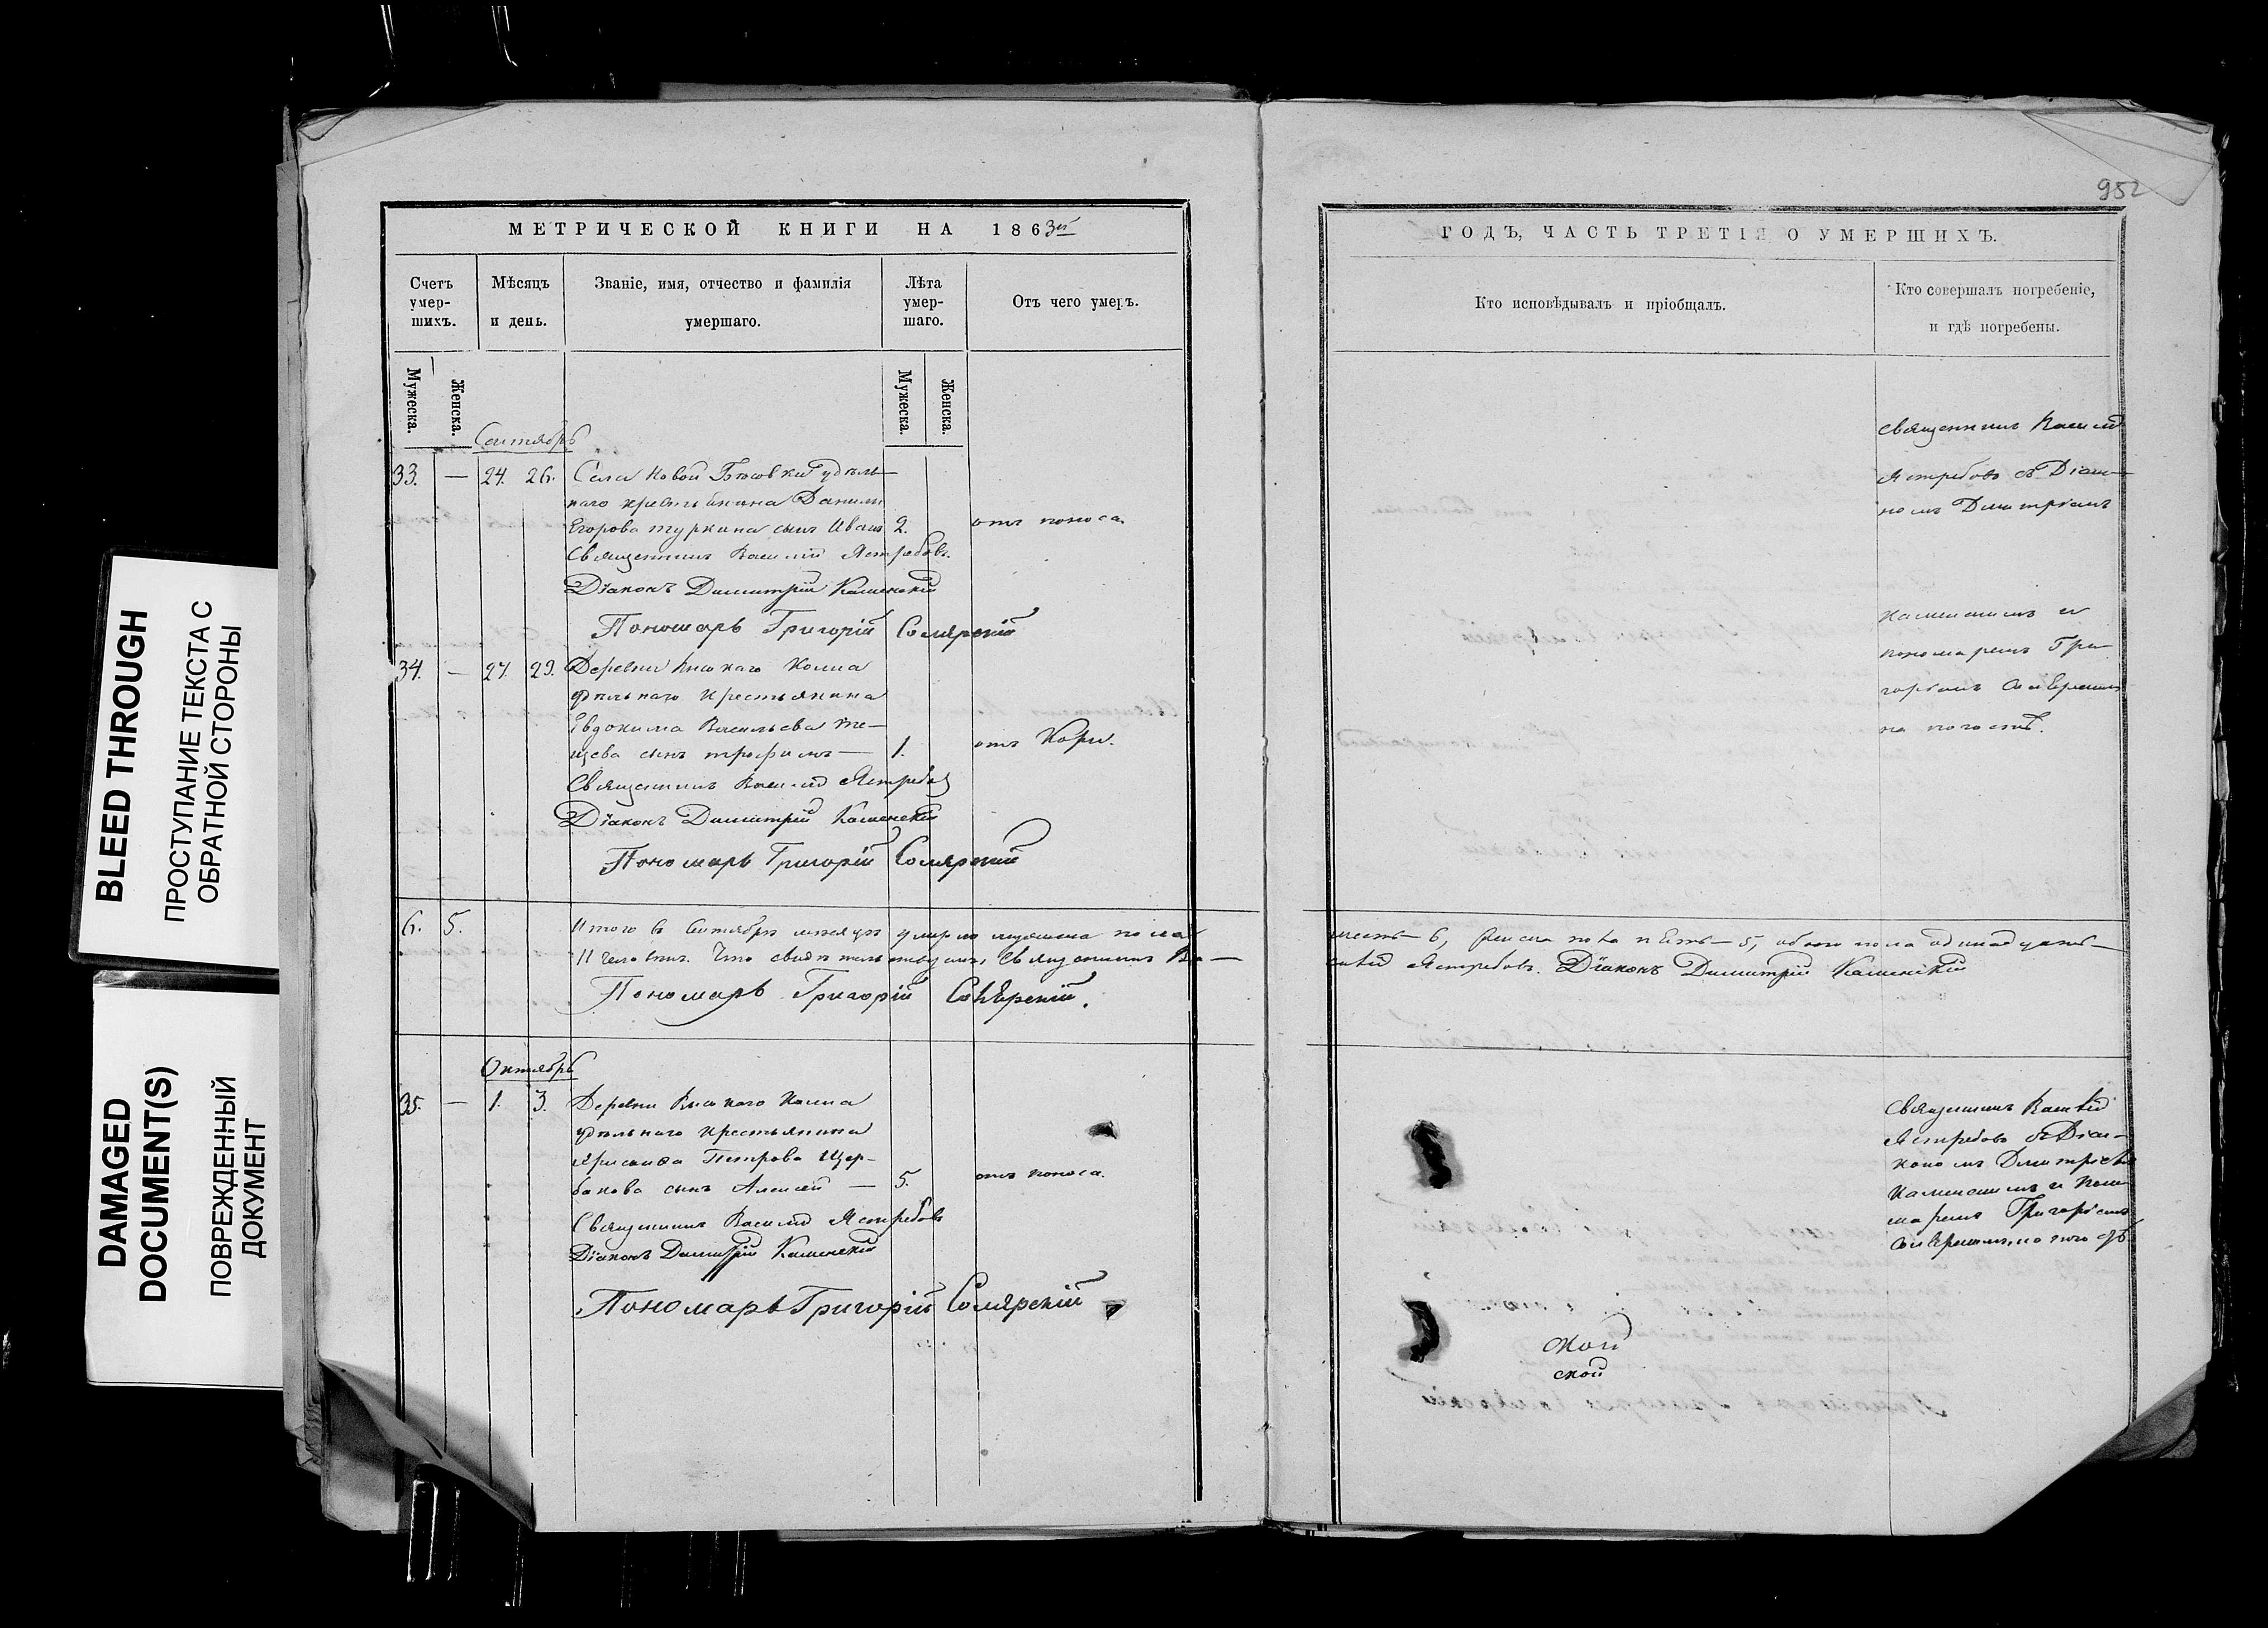 BLEED THROUGH
ПРОСТУПАНИЕ ТЕКСТА С
ОБРАТНОЙ СТОРОНЫ
DAMAGED
DOCUMENT(S)
ПОВРЕЖДЕННЫЙ
ДОКУМЕНТ
МЕТРИЧЕСКОЙ КНИГИ НА 1863й
Счетъ умер-шихъ.
Мѣсяцъ и день.
Званіе, имя, отчество и фамилія умершаго.
Лѣта умер-шаго.
Отъ чего умеръ.
Мужеска.
Женска.
Мужеска.
Женска.
Сентябрь
33. — 24. 26. Села Новой удѣль-
наго крестьянина Данили
Егорова Туркина сынъ Иванъ 2. отъ поноса.
Священникъ Василій Ястребовъ.
Діаконъ Димитрій Каменскій
Пономарь Григорій
34. — 27. 29. Деревни Высокаго Колка
удѣльнаго крестьянина
Евдокима Васильева
сынъ Трофимъ — 1. отъ Кори.
Священникъ Василій Ястребовъ
Діаконъ Димитрій Каменскій
Пономарь Григорій
6. 5. Итого въ Сентябрѣ мѣсяцѣ умерло мужеска пола
11 человѣкъ. Что свидѣтельствуемъ, Священникъ Ва-
Пономарь Григорій
Октябрь
35. — 1. 3. Деревни Высокаго Колка
удѣльнаго крестьянина
Петрова Щер-
бакова сынъ Алексѣй — 5. отъ поноса.
Священникъ Василій Ястребовъ
Діаконъ Димитрій Каменскій
Пономарь Григорій
952
ГОДЪ, ЧАСТЬ ТРЕТІЯ О УМЕРШИХЪ.
Кто исповѣдывалъ и пріобщалъ.
Кто совершалъ погребеніе,
и гдѣ погребены.
Священникъ Василій
Ястребовъ съ Діако-
номъ Димитріемъ
Каменскимъ и
пономаремъ Гри-
горіемъ
на погостѣ.
шесть — 6, женска пола пять — 5, обоего пола одинадцать —
силій Ястребовъ. Діаконъ Димитрій Каменскій
Священникъ Василій
Ястребовъ съ Діа-
кономъ Димитріемъ
Каменскимъ и поно-
маремъ Григоріемъ
ской
ской